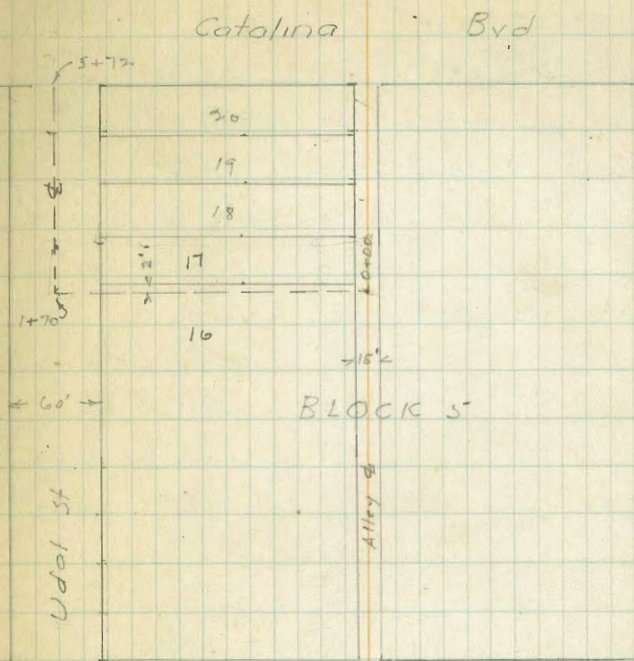 Catalina Bvd
5+72
20
19
18
17
2'
0+00
1+70
16
15'
60'
BLOCK 5
Alley ℄
Udal St